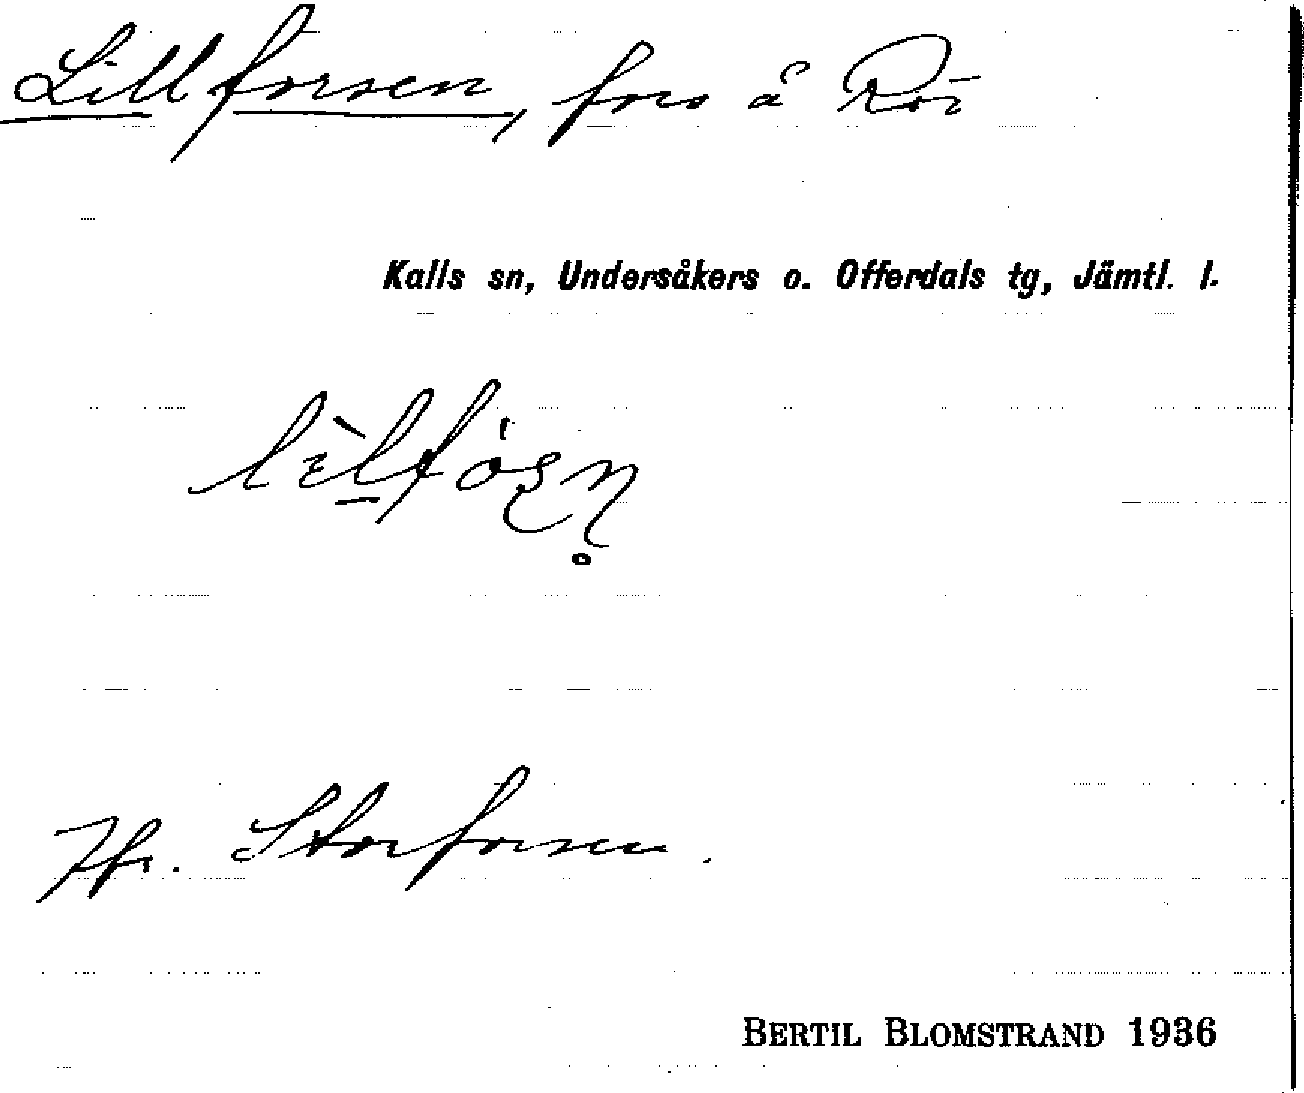 Lillforsen, fors å Röi
Kalls sn, Undersåkers o. Offerdals tg, Jämtl. l.
Jfr. Storforsen.
BERTIL BLOMSTRAND 1936